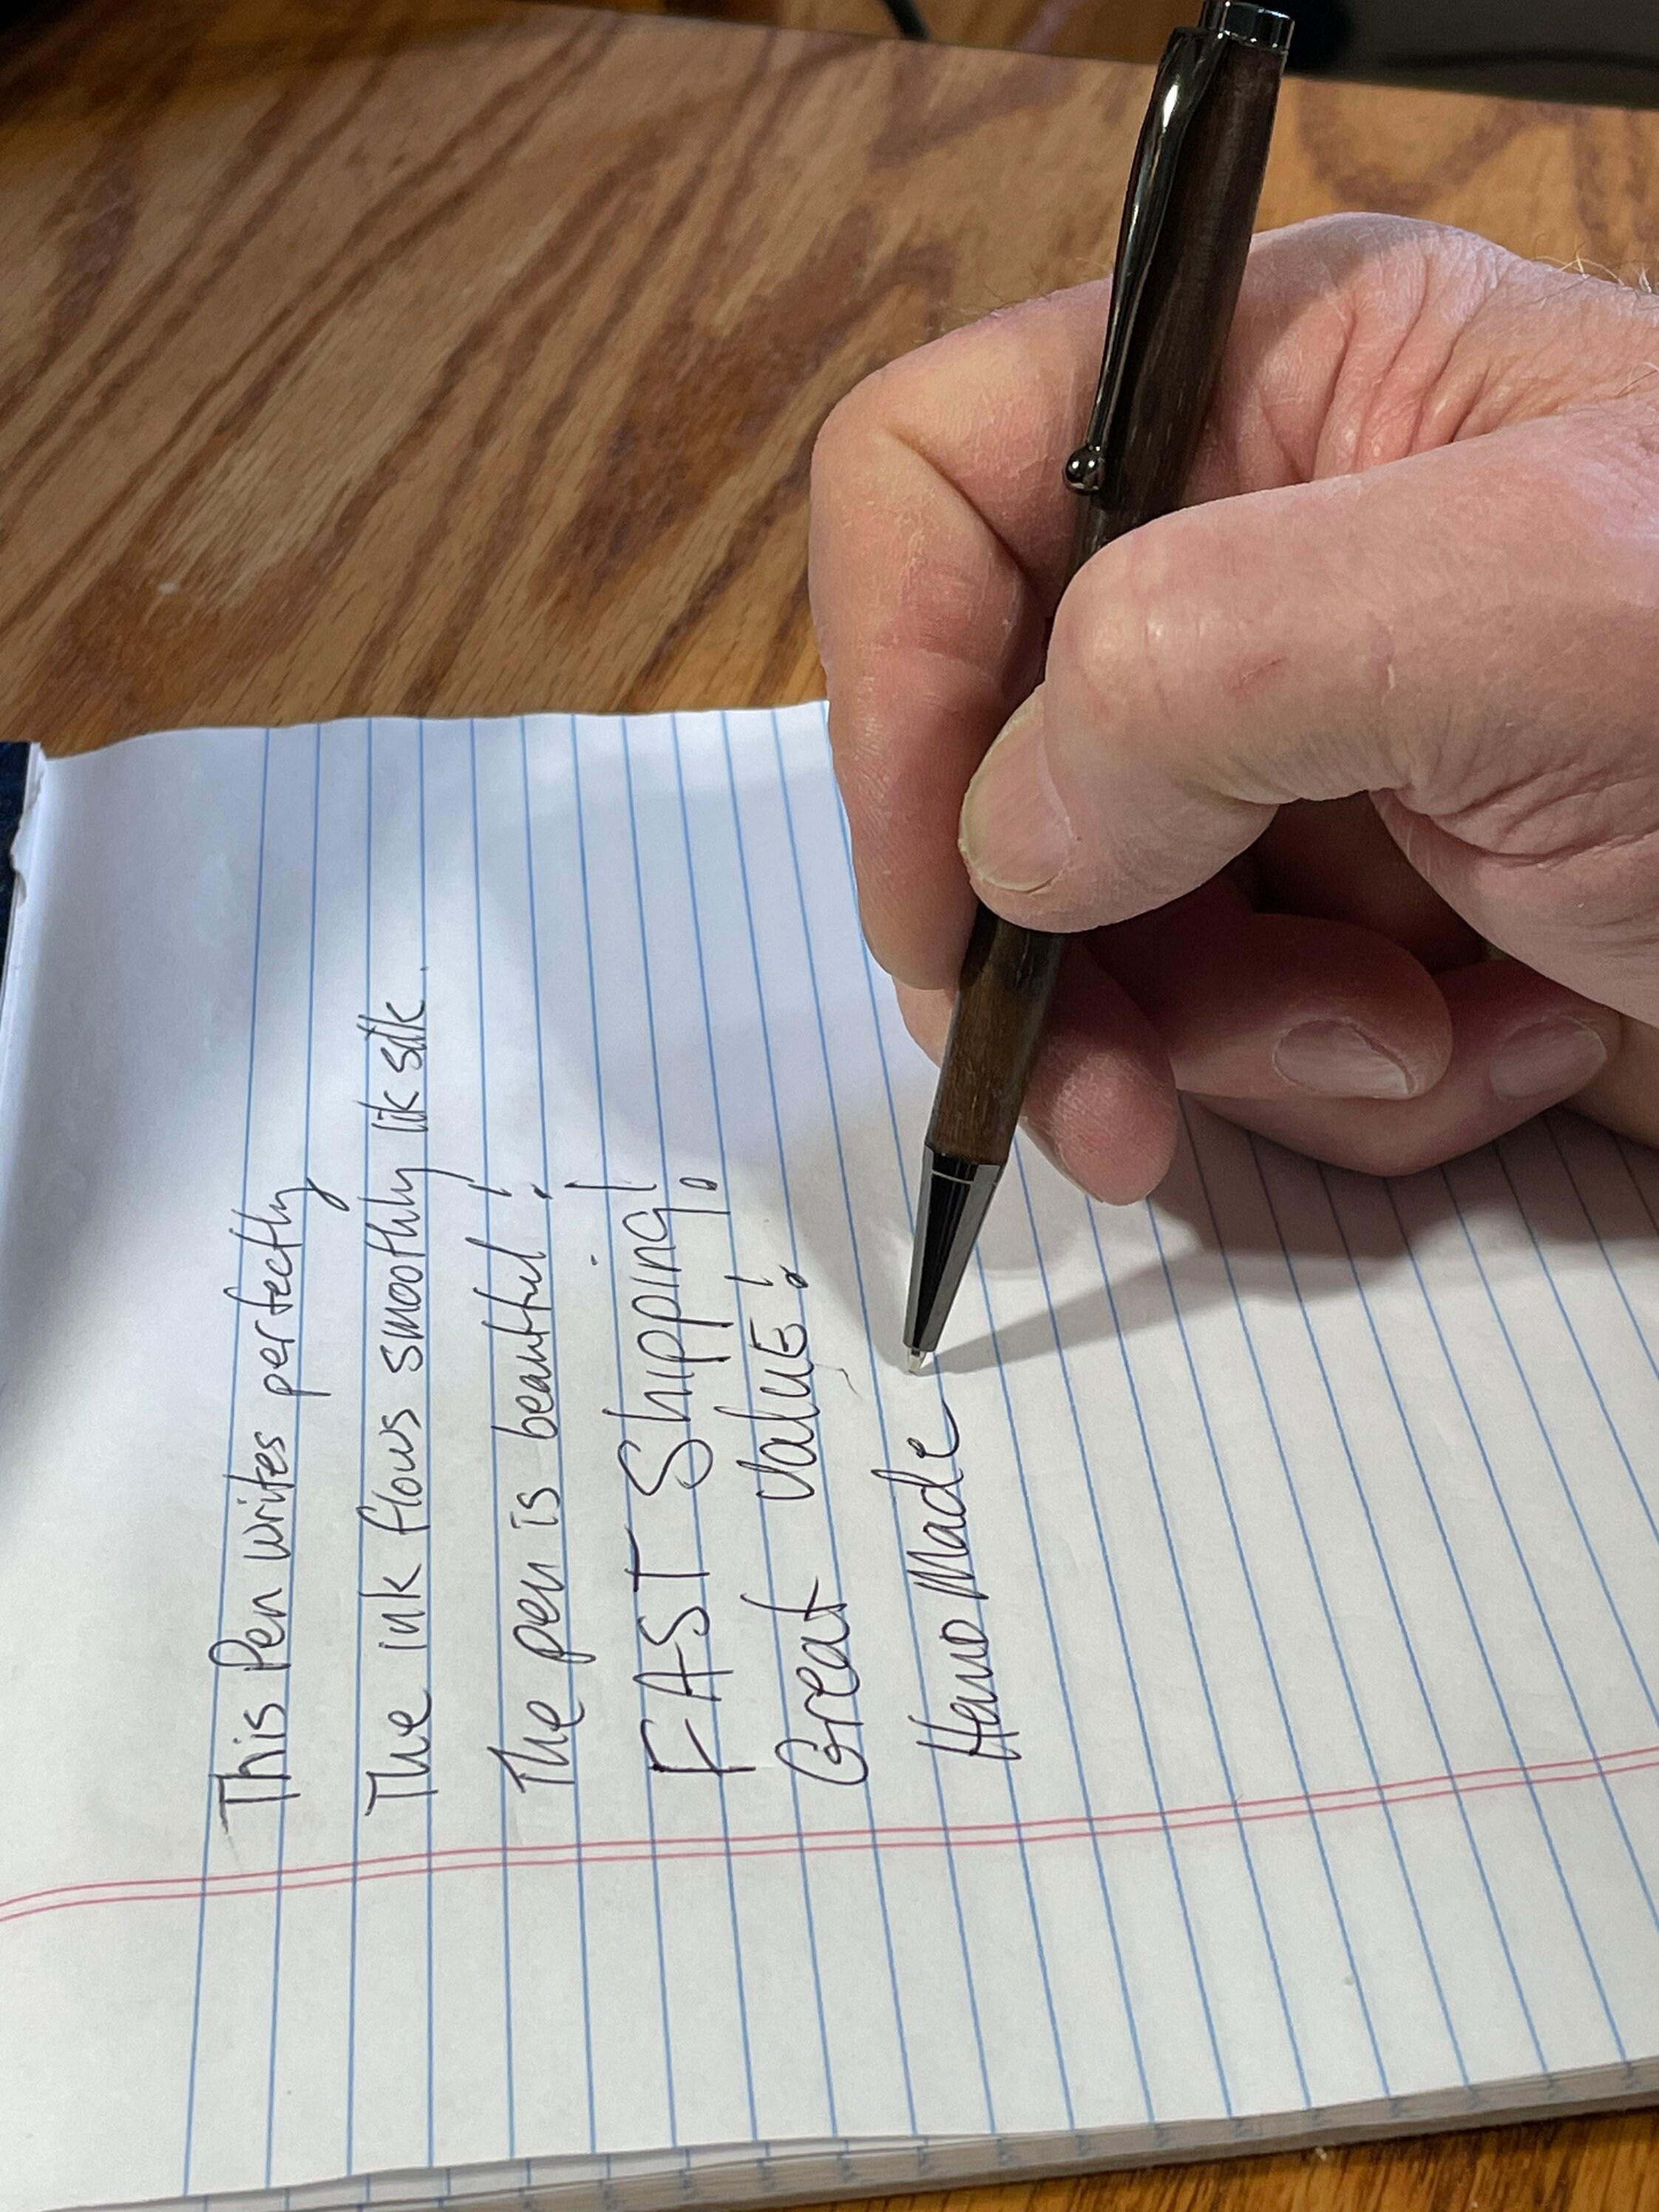 This Pen writes perfectly
The ink flows smoothly lik silk.
The pen is beautiful!
FAST Shipping!
Great ValuE!
Hand Made